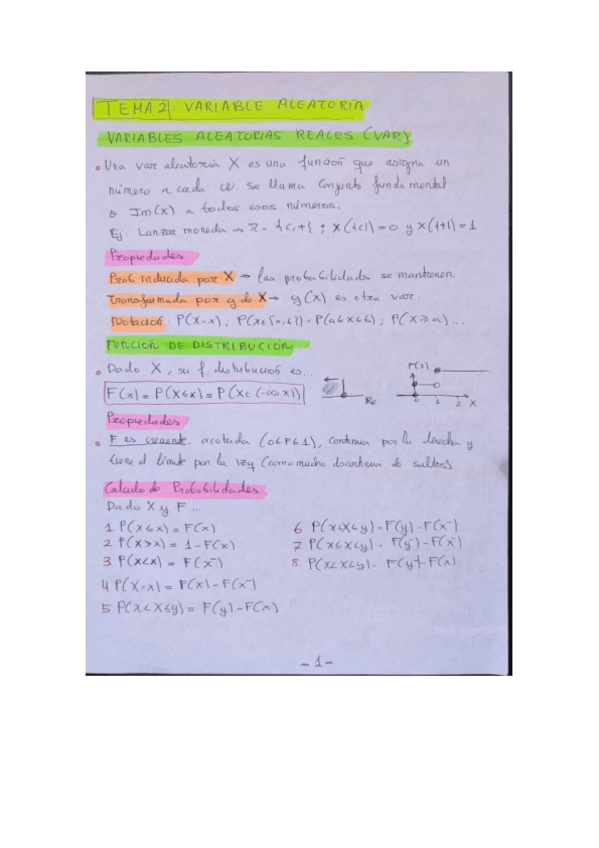 TEMA 2: VARIABLE ALEATORIA
VARIABLES ALEATORIAS REALES (VAR)
Una var aleatoria X es una función que asigna un
número a cada ω se llama Conjunto fundamental
o Im(X) a todos esos números.
Ej: Lanzar moneda → Ω = {c,+} ; X({c}) = 0 y X({+}) = 1
Propiedades
Prob inducida por X → las probabilidades se mantienen
Transformada por g de X → g(X) es otra var.
Notación: P(X=x) ; P(X∈[a,b]) = P(a≤X≤b) ; P(X≥a)...
FUNCIÓN DE DISTRIBUCIÓN
Dado X, su f. distribución es...
F(x) = P(X≤x) = P(X∈(-∞,x])
F(x)
0 1 2 X
Propiedades
F es creciente, acotada (0≤F≤1), continua por la derecha y
tiene el límite por la izq (como mucho discontinua de saltos).
Calculo de Probabilidades
Dado X y F ...
1. P(X≤x) = F(x)
2 P(X>x) = 1-F(x)
3 P(X<x) = F(x⁻)
4 P(X=x) = F(x) - F(x⁻)
5 P(x<X≤y) = F(y) - F(x)
6 P(x≤X≤y) = F(y) - F(x⁻)
7 P(x≤X<y) = F(y⁻) - F(x⁻)
8. P(x<X<y) = F(y⁻) - F(x)
- 1 -